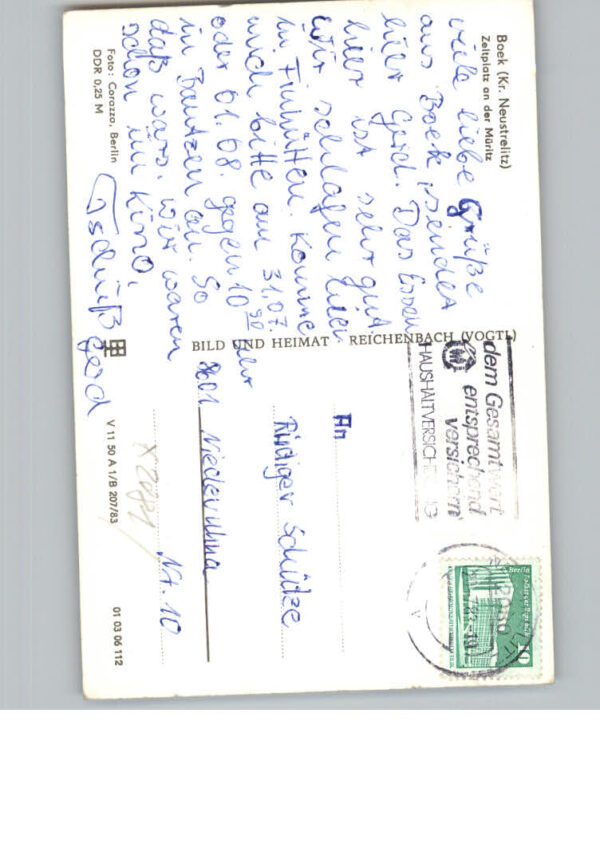 Boek (Kr. Neustrelitz)
Zeltplatz an der Müritz
viele liebe Grüße
aus Boek sendet
euer Gerd. Das Essen
hier ist sehr gut
Wir schlafen hier
in Finnhütten. Komme
mich bitte am 31.07.
oder 01.08. gegen 10 Uhr
in Bautzen an. So
daß wärs. Wir waren
schon im Kino.
Tschüß Gerd
Foto: Corazza, Berlin
DDR 0,25 M
BILD UND HEIMAT REICHENBACH (VOGTL)
V 11 50 A 1/B 207/83
01 03 06 112
dem Gesamtwert
entsprechend
versichern
HAUSHALTVERSICHERUNG
Berlin
10
An
Rüdiger Schütze
8601 Niederuhna
Nr. 10